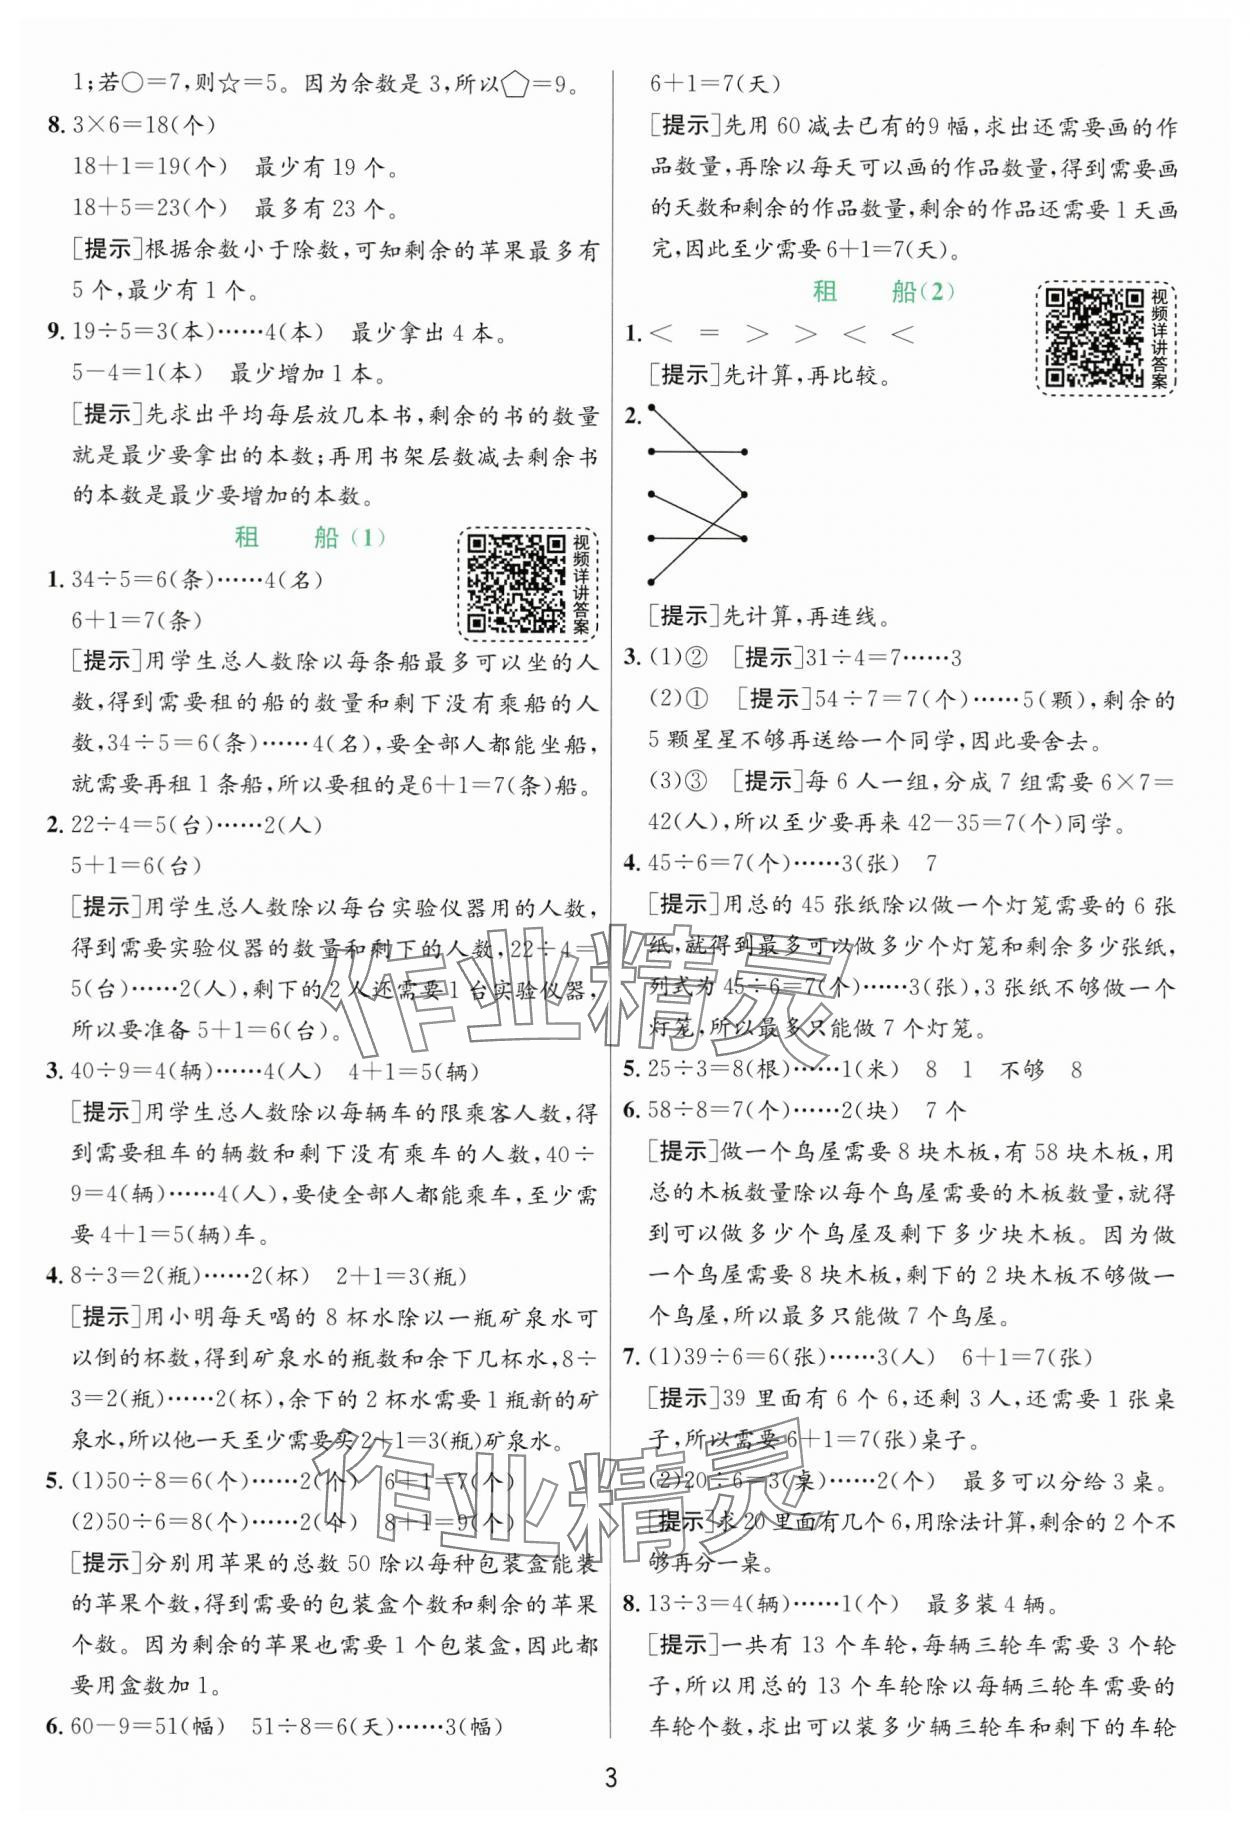 1;若○=7,则☆=5。因为余数是3,所以⬠=9。
8. 3×6=18(个)
18+1=19(个) 最少有19个。
18+5=23(个) 最多有23个。
[提示]根据余数小于除数,可知剩余的苹果最多有
5个,最少有1个。
9. 19÷5=3(本)……4(本) 最少拿出4本。
5-4=1(本) 最少增加1本。
[提示]先求出平均每层放几本书,剩余的书的数量
就是最少要拿出的本数;再用书架层数减去剩余书
的本数是最少要增加的本数。
租 船(1)
视频详讲答案
1. 34÷5=6(条)……4(名)
6+1=7(条)
[提示]用学生总人数除以每条船最多可以坐的人
数,得到需要租的船的数量和剩下没有乘船的人
数,34÷5=6(条)……4(名),要全部人都能坐船,
就需要再租1条船,所以要租的是6+1=7(条)船。
2. 22÷4=5(台)……2(人)
5+1=6(台)
[提示]用学生总人数除以每台实验仪器用的人数,
得到需要实验仪器的数量和剩下的人数,22÷4=
5(台)……2(人),剩下的2人还需要1台实验仪器,
所以要准备5+1=6(台)。
3. 40÷9=4(辆)……4(人) 4+1=5(辆)
[提示]用学生总人数除以每辆车的限乘客人数,得
到需要租车的辆数和剩下没有乘车的人数,40÷
9=4(辆)……4(人),要使全部人都能乘车,至少需
要4+1=5(辆)车。
4. 8÷3=2(瓶)……2(杯) 2+1=3(瓶)
[提示]用小明每天喝的8杯水除以一瓶矿泉水可
以倒的杯数,得到矿泉水的瓶数和余下几杯水,8÷
3=2(瓶)……2(杯),余下的2杯水需要1瓶新的矿
泉水,所以他一天至少需要买2+1=3(瓶)矿泉水。
5. (1)50÷8=6(个)……2(个) 6+1=7(个)
(2)50÷6=8(个)……2(个) 8+1=9(个)
[提示]分别用苹果的总数50除以每种包装盒能装
的苹果个数,得到需要的包装盒个数和剩余的苹果
个数。因为剩余的苹果也需要1个包装盒,因此都
要用盒数加1。
6. 60-9=51(幅) 51÷8=6(天)……3(幅)
6+1=7(天)
[提示]先用60减去已有的9幅,求出还需要画的作
品数量,再除以每天可以画的作品数量,得到需要画
的天数和剩余的作品数量,剩余的作品还需要1天画
完,因此至少需要6+1=7(天)。
租 船(2)
视频详讲答案
1. < = > > < <
[提示]先计算,再比较。
2.
[提示]先计算,再连线。
3. (1)② [提示]31÷4=7……3
(2)① [提示]54÷7=7(个)……5(颗),剩余的
5颗星星不够再送给一个同学,因此要舍去。
(3)③ [提示]每6人一组,分成7组需要6×7=
42(人),所以至少要再来42-35=7(个)同学。
4. 45÷6=7(个)……3(张) 7
[提示]用总的45张纸除以做一个灯笼需要的6张
纸,就得到最多可以做多少个灯笼和剩余多少张纸,
列式为45÷6=7(个)……3(张),3张纸不够做一个
灯笼,所以最多只能做7个灯笼。
5. 25÷3=8(根)……1(米) 8 1 不够 8
6. 58÷8=7(个)……2(块) 7个
[提示]做一个鸟屋需要8块木板,有58块木板,用
总的木板数量除以每个鸟屋需要的木板数量,就得
到可以做多少个鸟屋及剩下多少块木板。因为做
一个鸟屋需要8块木板,剩下的2块木板不够做一
个鸟屋,所以最多只能做7个鸟屋。
7. (1)39÷6=6(张)……3(人) 6+1=7(张)
[提示]39里面有6个6,还剩3人,还需要1张桌
子,所以需要6+1=7(张)桌子。
(2)20÷6=3(桌)……2(个) 最多可以分给3桌。
[提示]求20里面有几个6,用除法计算,剩余的2个不
够再分一桌。
8. 13÷3=4(辆)……1(个) 最多装4辆。
[提示]一共有13个车轮,每辆三轮车需要3个轮
子,所以用总的13个车轮除以每辆三轮车需要的
车轮个数,求出可以装多少辆三轮车和剩下的车轮
作业精灵
作业精灵
3